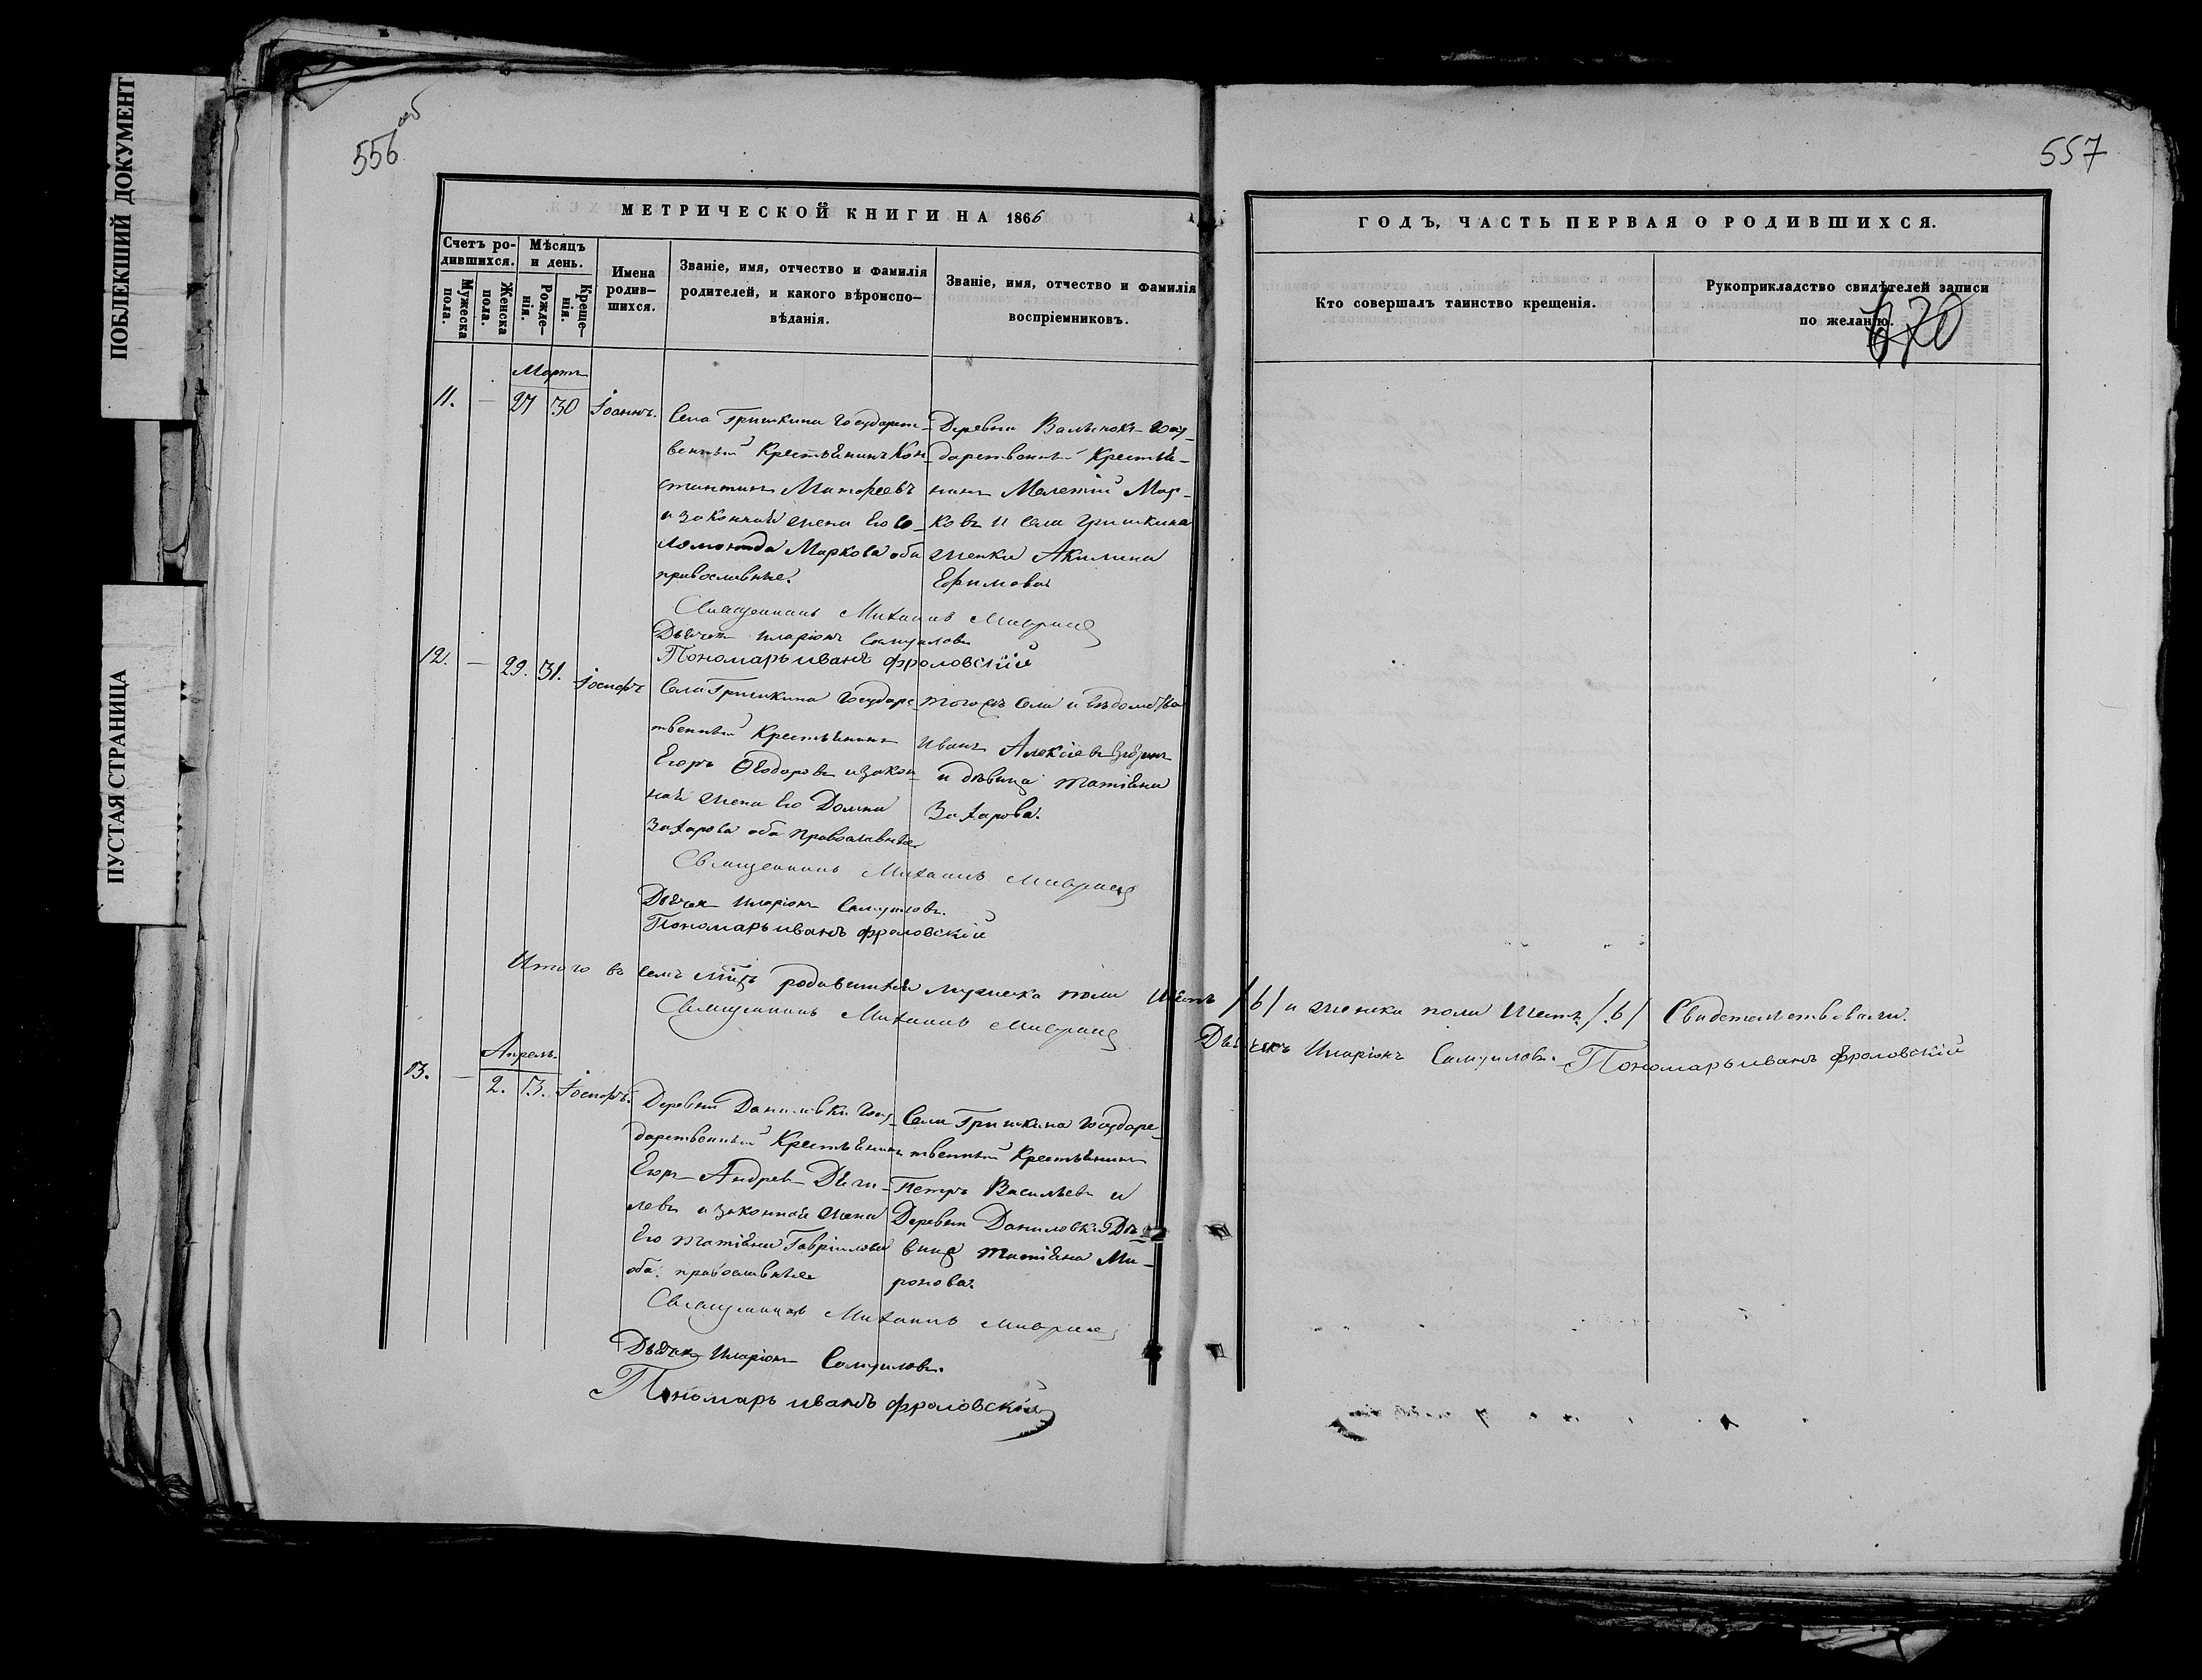 ПОБЛЕКШИЙ ДОКУМЕНТ
ПУСТАЯ СТРАНИЦА
556 об
557
МЕТРИЧЕСКОЙ КНИГИ НА 1866
ГОДЪ, ЧАСТЬ ПЕРВАЯ О РОДИВШИХСЯ.
Счетъ ро-
дившихся.
Мужеска
пола.
Женска
пола.
Мѣсяцъ
и день.
Рожде-
нія.
Креще-
нія.
Имена
родив-
шихся.
Званіе, имя, отчество и фамилія
родителей, и какого вѣроиспо-
вѣданія.
Званіе, имя, отчество и фамилія
воспріемниковъ.
Кто совершалъ таинство крещенія.
Рукоприкладство свидѣтелей записи
по желанію.
670
Мартъ
11. — 27 30 Іоаннъ.
Села Гришкина Государст-
венный Крестьянинъ Кон-
стантинъ Матфеевъ
и законная жена Его Со-
ломонида Маркова оба
православные.
Деревни Валынокъ Госу-
дарственный Крестья-
нинъ Мелетій Мар-
ковъ и села Гришкина
женка Акилина
Ефимова
Священникъ Михаилъ
Дьячекъ Иларіонъ Самуиловъ
Пономарь иванъ фроловскій
12. — 29. 31. Іосифъ
Села Гришкина Государс-
твенный Крестьянинъ
Егоръ Ѳеодоровъ и закон-
ная жена Его Домна
Захарова оба Православные
тогожъ села и вѣдомства
Иванъ Алексіевъ
и дѣвица татіана
Захарова.
Священникъ Михаилъ
Дьячек Иларіонъ Самуиловъ.
Пономарь иванъ фроловскій
Итого въ семъ мцѣ родившихся мужеска пола шесть /6/ и женска пола шесть /6/ Свидетельствовали.
Священникъ Михаилъ
Дьячекъ Иларіонъ Самуиловъ. Пономарь иванъ фроловскій
Апрель.
13. — 2. 3. Іосифъ.
Деревни Даниловки Госу-
дарственный Крестьянинъ
Егоръ Андрев
левъ и законная жена
Его татіана Гавріилова
оба православные
Села Гришкина Государс-
твенный Крестьянинъ
Петръ Васильевъ и
Деревни Даниловки Дѣ-
вица татіана Ми-
ронова.
Священникъ Михаилъ
Дьячекъ Иларіонъ Самуиловъ.
Пономарь иванъ фроловскій